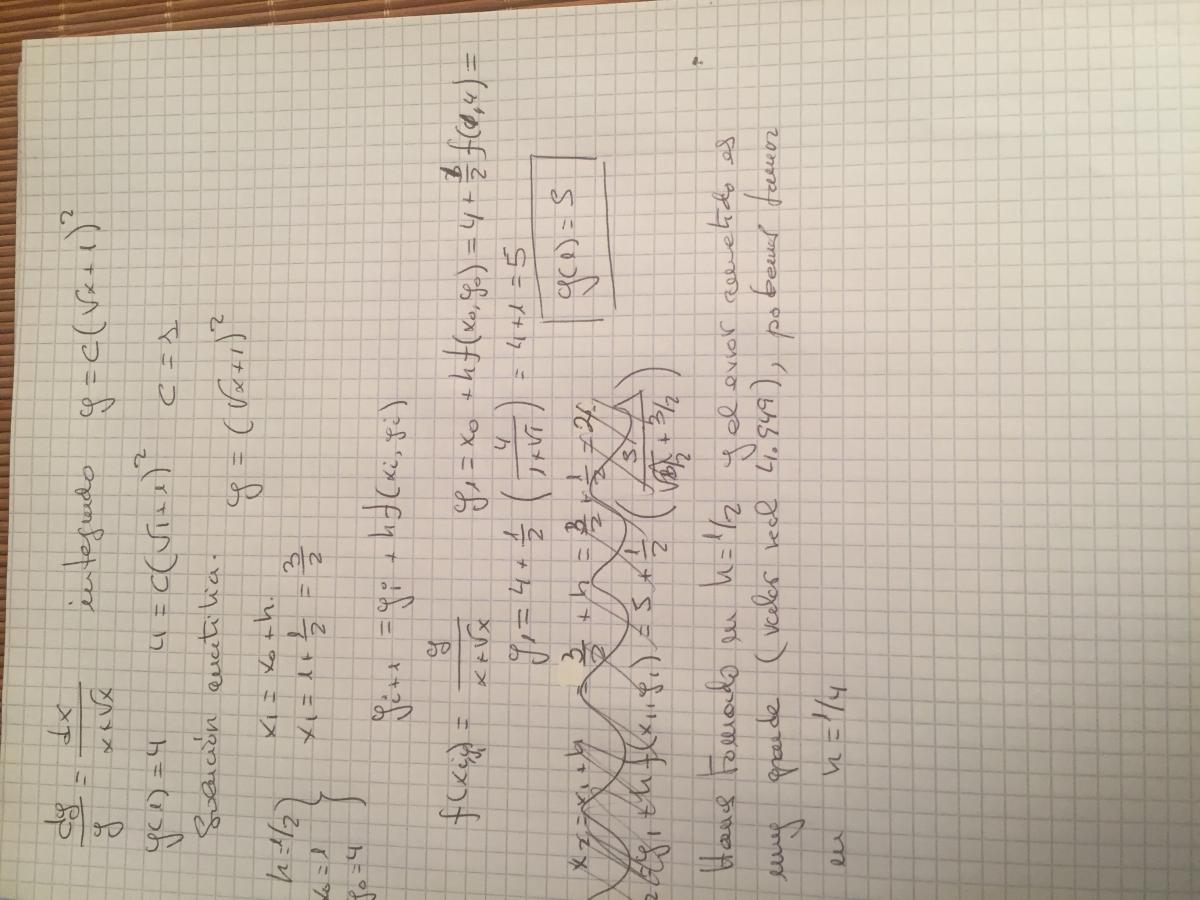 dy/y = dx/(x+√x) integrando y = C(√x+1)²
y(1) = 4 4 = C(√1+1)² C = 1
Solución analítica. y = (√x+1)²
h=1/2 x₁ = x₀ + h.
x₀=1 x₁ = 1 + 1/2 = 3/2
y₀=4
y_{i+1} = y_i + h f(x_i, y_i)
f(x_i, y_i) = y/(x+√x) y₁ = x₀ + h f(x₀, y₀) = 4 + 1/2 f(1,4) =
y₁ = 4 + 1/2 (4/(1+√1)) = 4+1 = 5
y(1) = 5
x₂ = x₁ + h = 3/2 + h = 3/2 + 1/2 = 2
y₁ + h f(x₁, y₁) = 5 + 1/2 (5/(√3/2 + 3/2))
Hemos tomado en h=1/2 y el error cometido es
muy grande (valor real 4.949), podemos tomar
en h=1/4